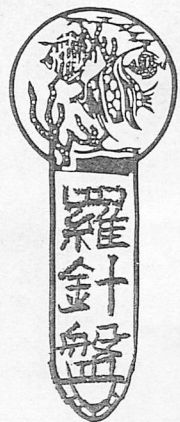 羅針盤